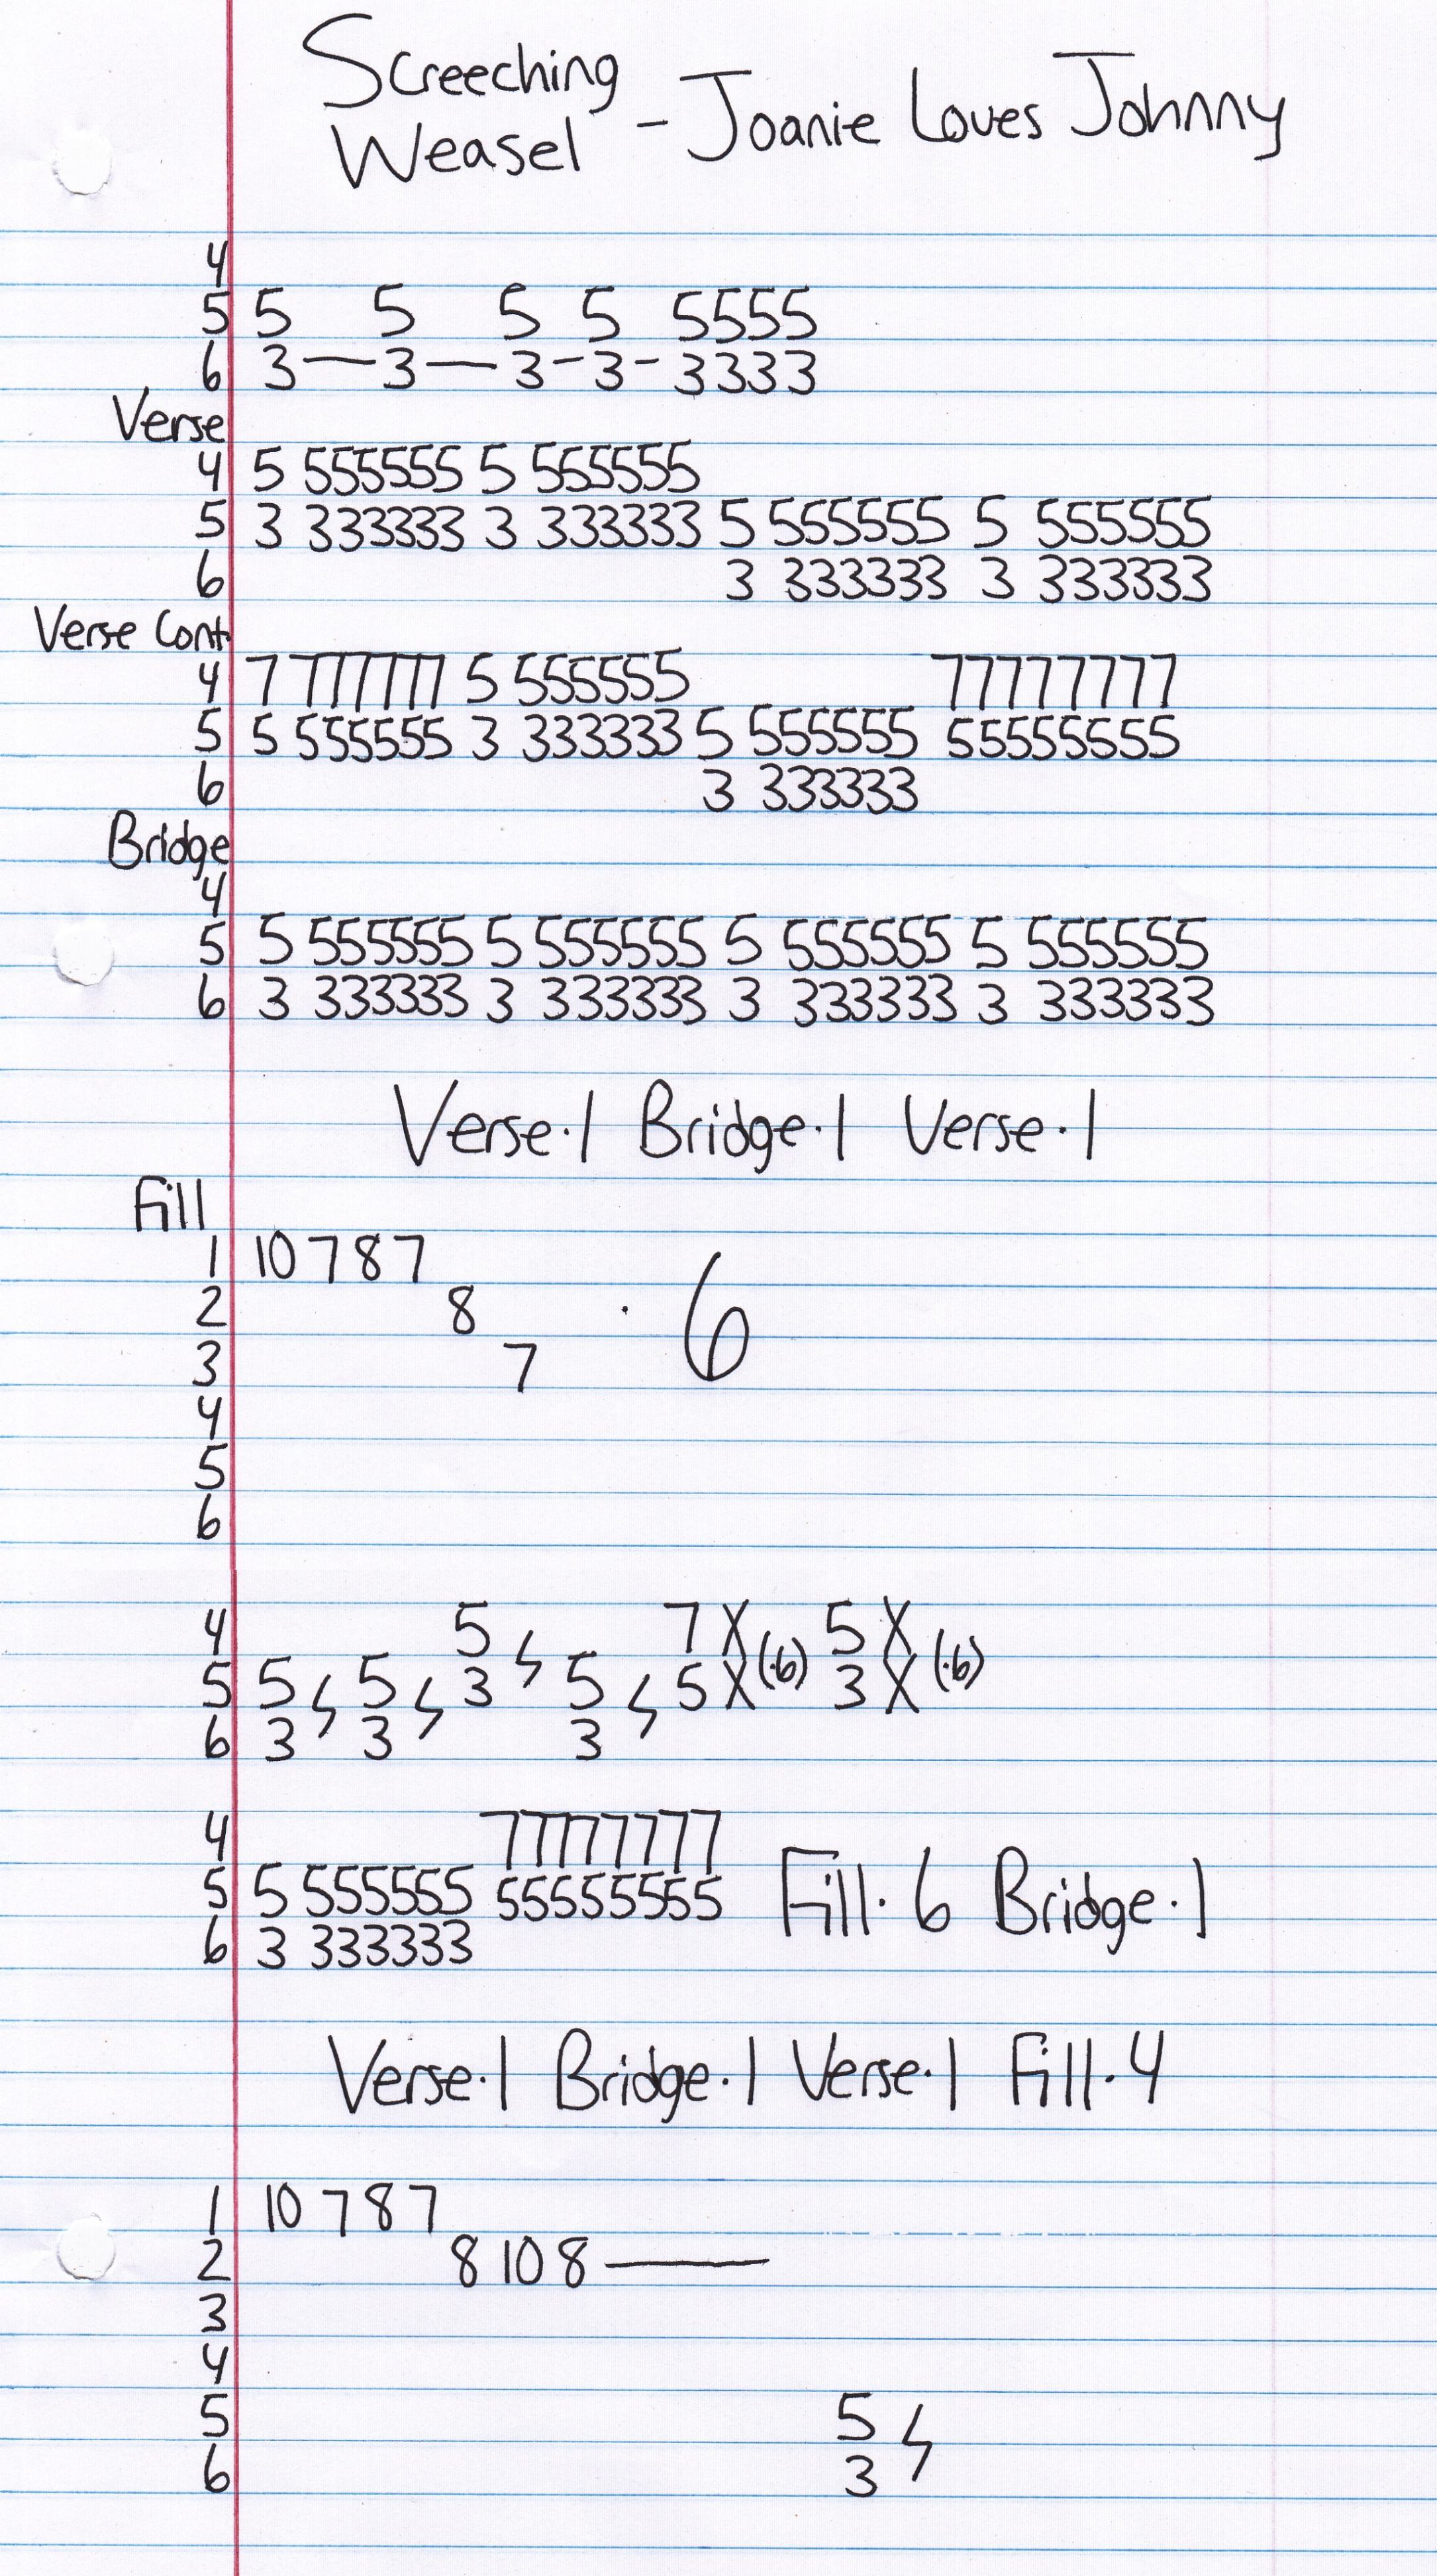 Screeching
Weasel - Joanie Loves Johnny
4
5 5 5 5 5 5555
6 3—3—3-3-3333
Verse
4 5 555555 5 555555
5 3 333333 3 333333 5 555555 5 555555
6 3 333333 3 333333
Verse Cont.
4 7 777777 5 555555 77777777
5 5 555555 3 333333 5 555555 55555555
6 3 333333
Bridge
4
5 5 555555 5 555555 5 555555 5 555555
6 3 333333 3 333333 3 333333 3 333333
Verse·1 Bridge·1 Verse·1
Fill
1 10 7 8 7
2 8 · 6
3 7
4
5
6
4 5 ϟ 7 X 5 X
5 5 ϟ 5 ϟ 3 5 ϟ 5 X (·6) 3 X (·6)
6 3 3 3
4 77777777
5 5 555555 55555555 Fill·6 Bridge·1
6 3 333333
Verse·1 Bridge·1 Verse·1 Fill·4
1 10 7 8 7
2 8 10 8———
3
4
5 5 ϟ
6 3